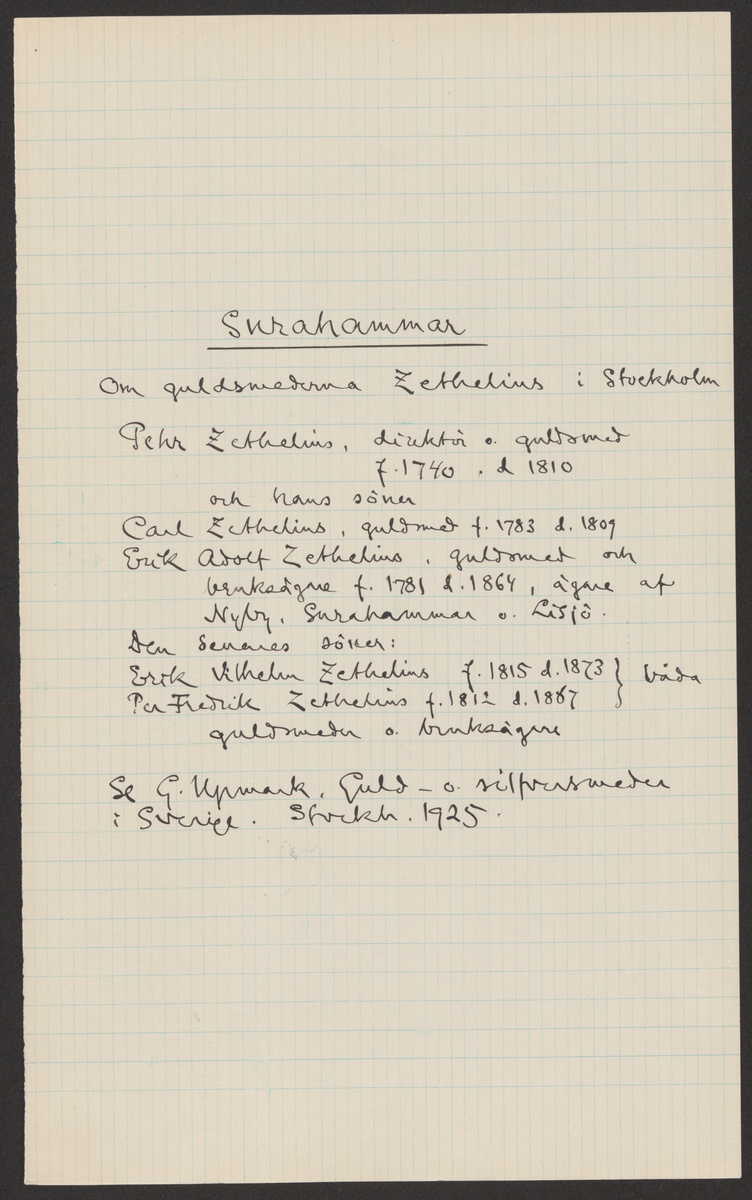 Surahammar
Om guldsmederna Zethelius i Stockholm
Pehr Zethelius, direktör o. guldsmed
f. 1740. d 1810
och hans söner
Carl Zethelius, guldsmed f. 1783 d. 1809
Erik Adolf Zethelius, guldsmed och
bruksägare f. 1781 d. 1864, ägare af
Nyby, Surahammar o. Lisjö.
Den senares söner:
Erik Vilhelm Zethelius f. 1815 d. 1873 } båda
Per Fredrik Zethelius f. 1812 d. 1867
guldsmeder o. bruksägare
Se G. Upmark, Guld- o. silfversmeder
i Sverige. Stockh. 1925.